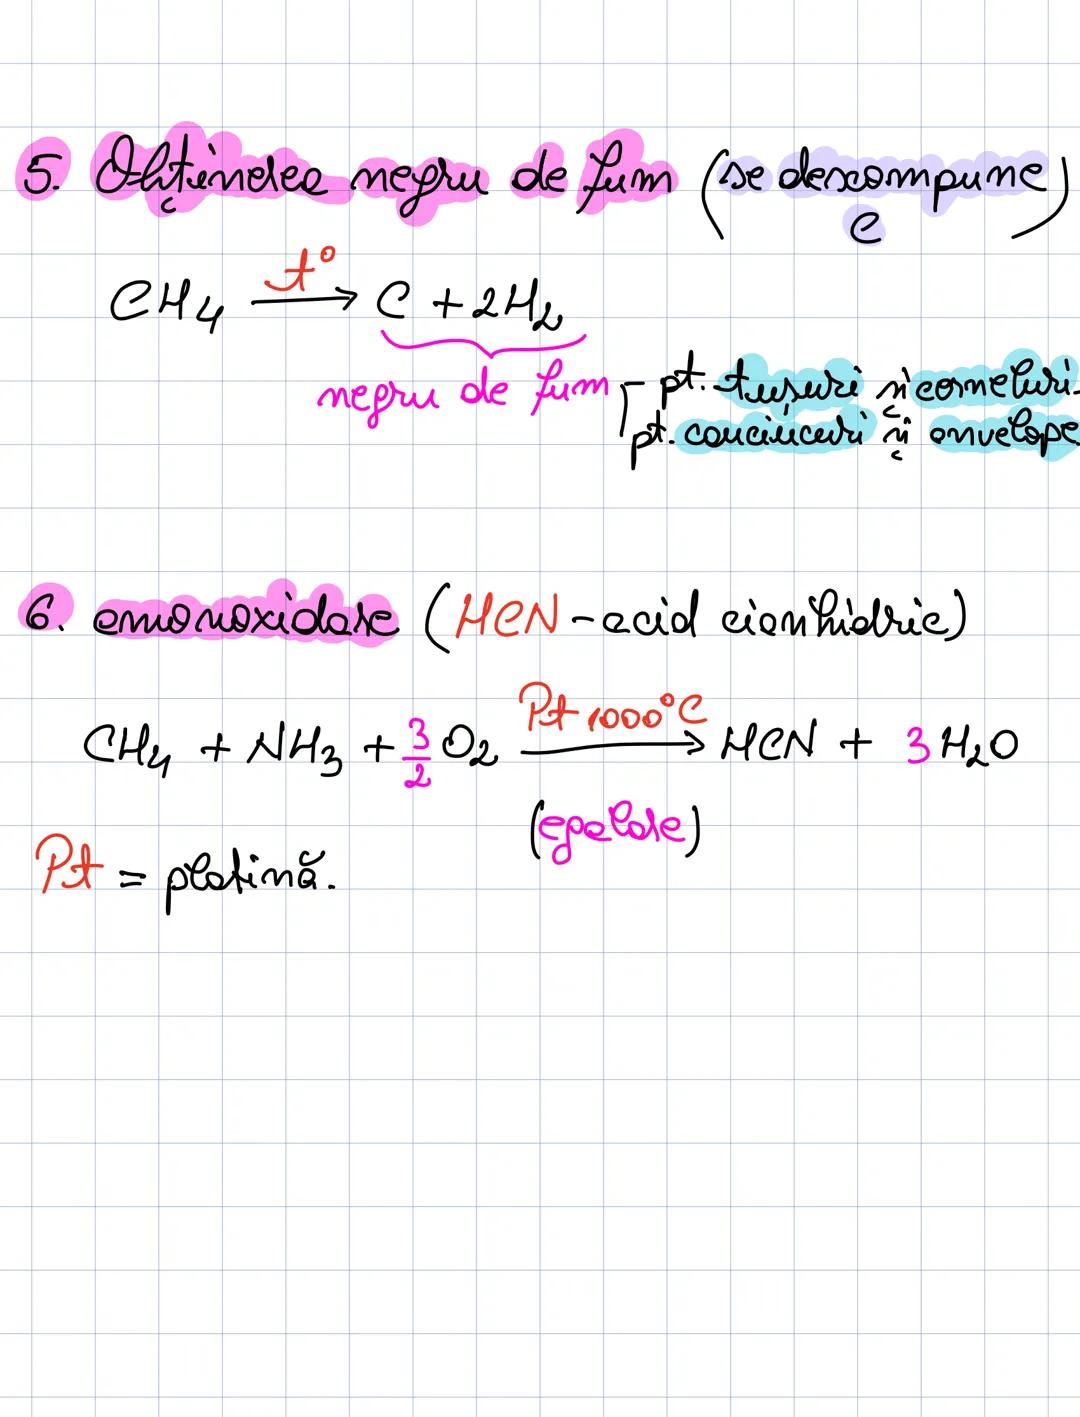 5. Obținerea negru de fum (se descompune)
C
CH4 t° → C + 2H2
negru de fum - pt. tușuri și cerneluri
pt. cauciucuri și anvelope
6. amonoxidare (HCN - acid cianhidric)
CH4 + NH3 + 3/2 O2 Pt 1000°C → HCN + 3 H2O
(egalare)
Pt = platină.